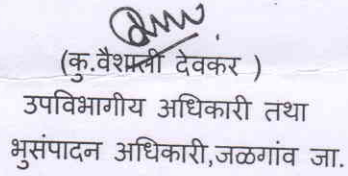 (कु.वैशाली देवकर )
उपविभागीय अधिकारी तथा
भुसंपादन अधिकारी,जळगांव जा.